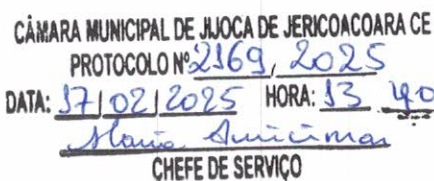 CÂMARA MUNICIPAL DE JIJOCA DE JERICOACOARA CE
PROTOCOLO Nº 2169, 2025
DATA: 17/02/2025 HORA: 13 40
Maria
CHEFE DE SERVIÇO